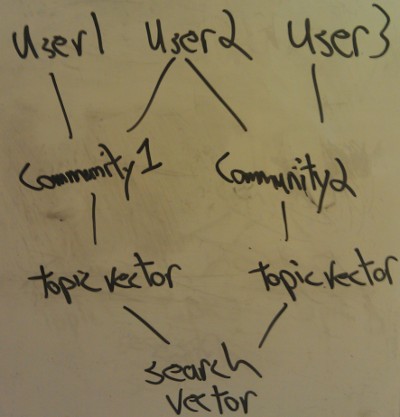 User1 User2 User3
Community1 Community2
topic vector topic vector
search
vector